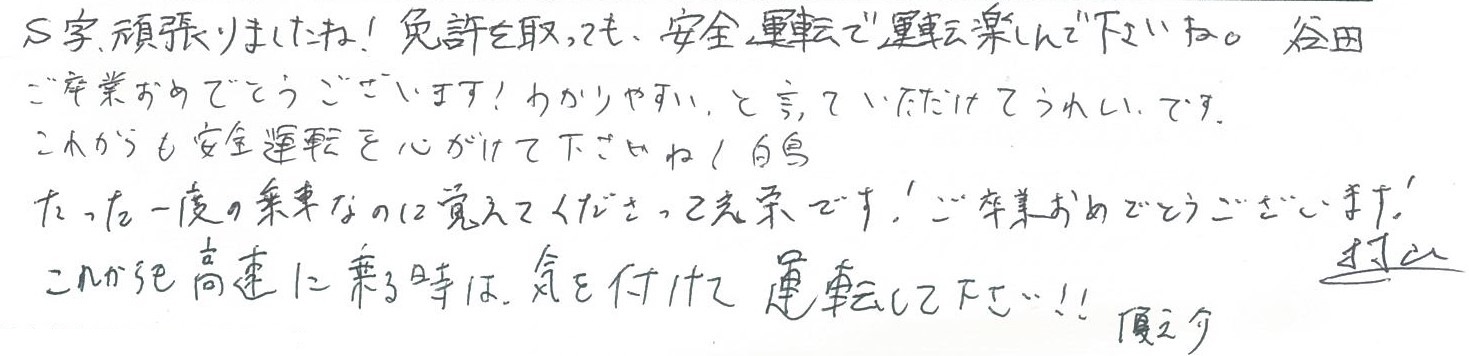 S字、頑張りましたね！免許を取っても、安全運転で運転楽しんで下さいね。 谷田
ご卒業おめでとうございます！わかりやすい、と言っていただけてうれしいです。
これからも安全運転を心がけて下さいね！白鳥
たった一度の乗車なのに覚えてくださって光栄です！ご卒業おめでとうございます！
村山
これからも高速に乗る時は、気を付けて運転して下さい！！
優之介